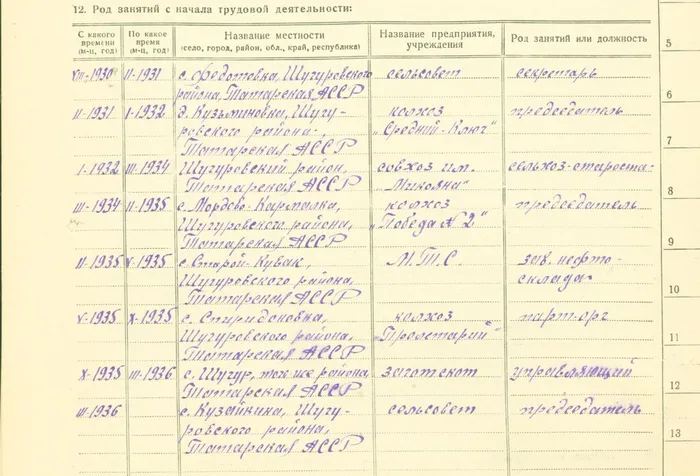 12. Род занятий с начала трудовой деятельности:
С какого времени (м-ц, год) | По какое время (м-ц, год) | Название местности (село, город, район, обл., край, республика) | Название предприятия, учреждения | Род занятий или должность
VIII-1930 | II-1931 | с. Федотовка, Шугуровского | сельсовет | секретарь
района, Татарская АССР
II-1931 | I-1932 | д. Кузьминовка, Шугу- | колхоз | председатель
ровского района, | „Средний-Ключ"
Татарская АССР
I-1932 | III-1934 | Шугуровский район, | совхоз им. | сельхоз-староста-
Татарская АССР | „Микояна"
III-1934 | II-1935 | с. Мордово-Кармалка, | колхоз | председатель
Шугуровского района, | „Победа №2"
Татарская АССР
II-1935 | V-1935 | с. Старой-Кувак, | М.Т.С. | зав. нефто-
Шугуровского района, | склада
Татарская АССР
V-1935 | X-1935 | с. Спиридоновка, | колхоз | парторг
Шугуровского района, | „Пролетарий"
Татарская АССР
X-1935 | III-1936 | с. Шугур, того же района, | заготскот | управляющий
Татарская АССР
III-1936 | с. Кузайкина, Шугу- | сельсовет | председатель
ровского района,
Татарская АССР
5
6
7
8
9
10
11
12
13